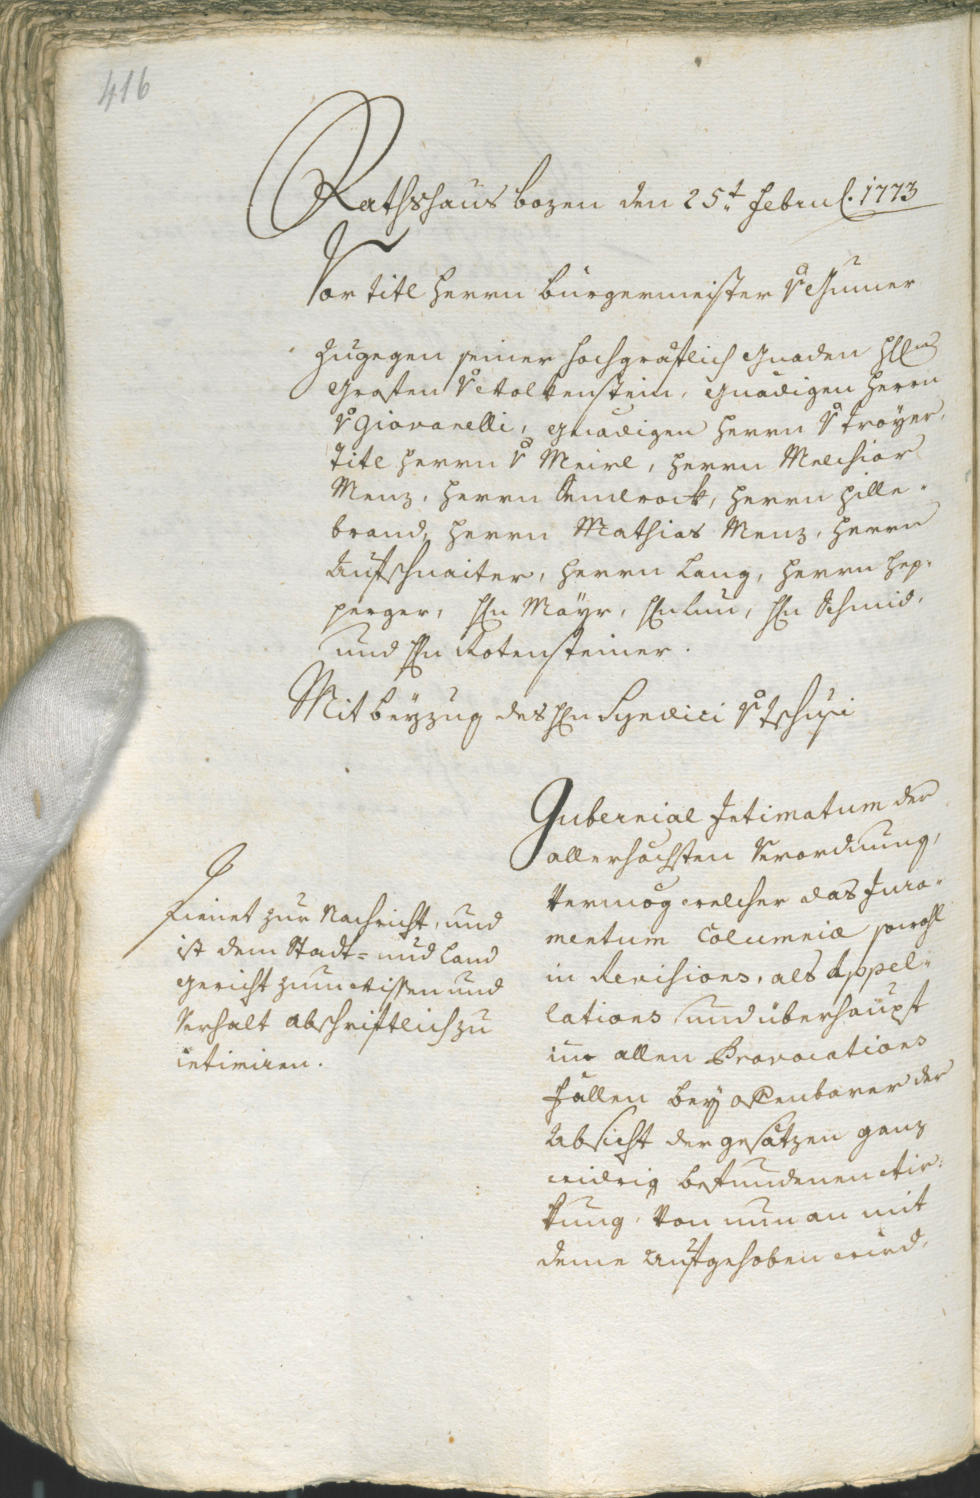 416
Rathshaus bozen den 25.t Febru. 1773
Vor titl herrn burgermeister v Gumer
Zugegen seiner hochgräflich Gnaden
Grafen v Wolkenstein, gnädigen herrn
v Giovanelli, gnädigen herrn v Troyer,
titl herrn v Meirl, herrn Melchior
Menz, herrn Semlrock, herrn hille-
brand, herrn Mathias Menz, herrn
Aufschnaiter, herrn Lang, herrn hep-
perger, Hn Mayr, Hn Lun, Hn Schmid,
und Hn Rotensteiner.
Mit beyzug des Hn Syndici v
Gubernial Intimatum der
allerhöchsten Verordnung,
vermög welcher das Jura-
mentum Calumniæ sowohl
in Revisions, als Appel-
lations und überhaupt
in allen Provocations
Fällen bey offenbarer der
Absicht der gesätzen ganz
widrig befundenen Wir-
kung, von nun an mit
deme aufgehoben wird.
Dienet zur Nachricht, und
ist dem Stadt- und Land
gericht zum wissen und
Verhalt abschriftlich zu
intimiren.